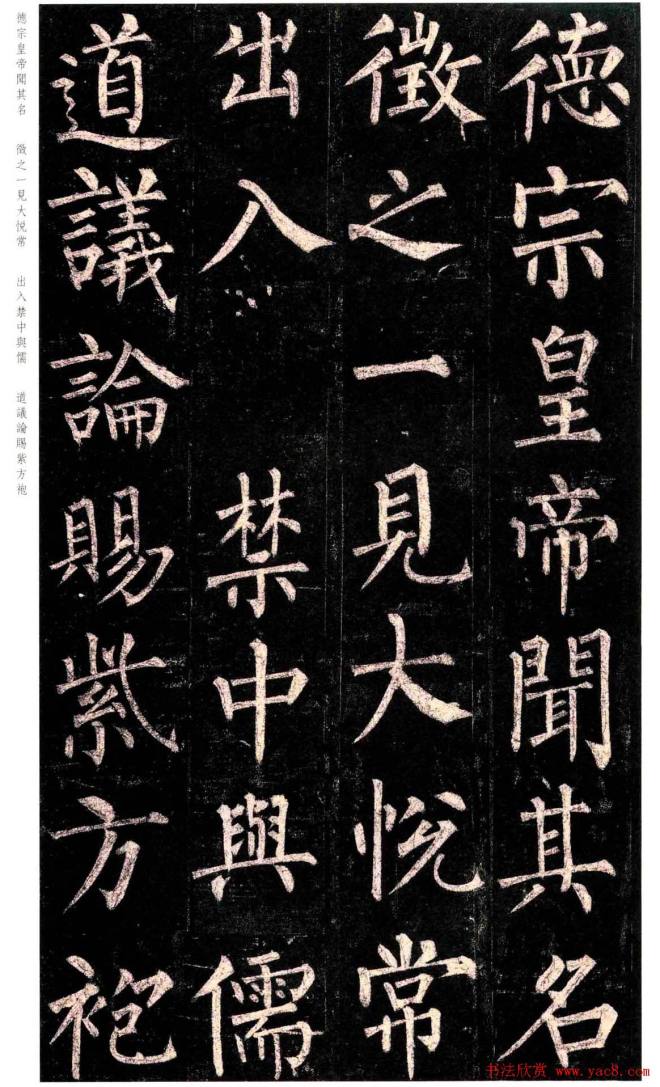 德宗皇帝聞其名
徵之一見大悅常
出入禁中與儒
道議論賜紫方袍
德宗皇帝聞其名 徵之一見大悅常 出入禁中與儒 道議論賜紫方袍
书法欣赏 www.yac8.com